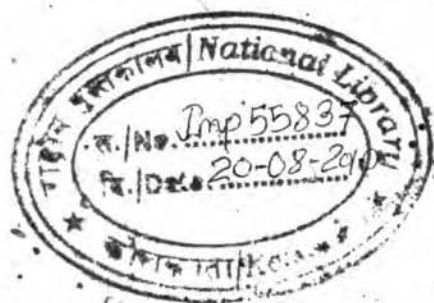 राष्ट्रीय पुस्तकालय/National Library
सं./No. Imp'55837
दि./Date 20-08-20